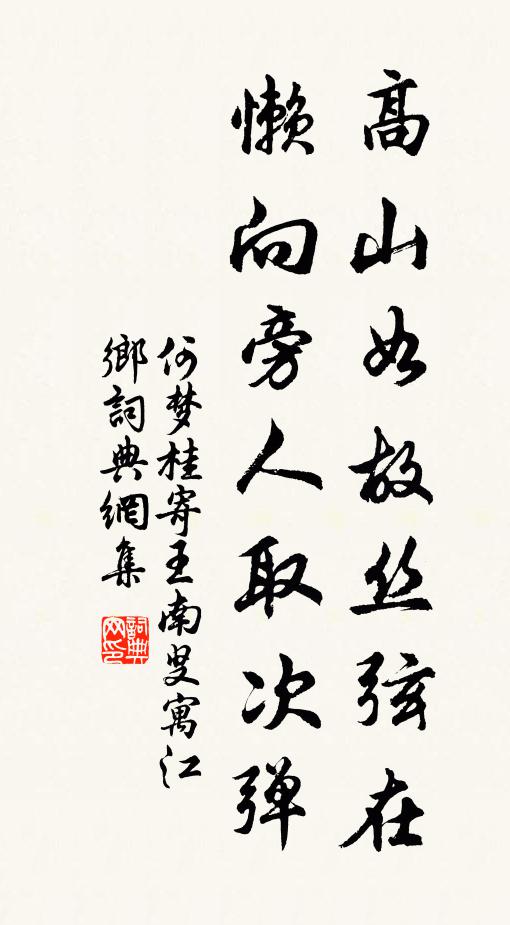 高山如故丝弦在
懒向旁人取次弹
何梦桂寄王南叟寓江
鄉詞典網集
詞典
网印